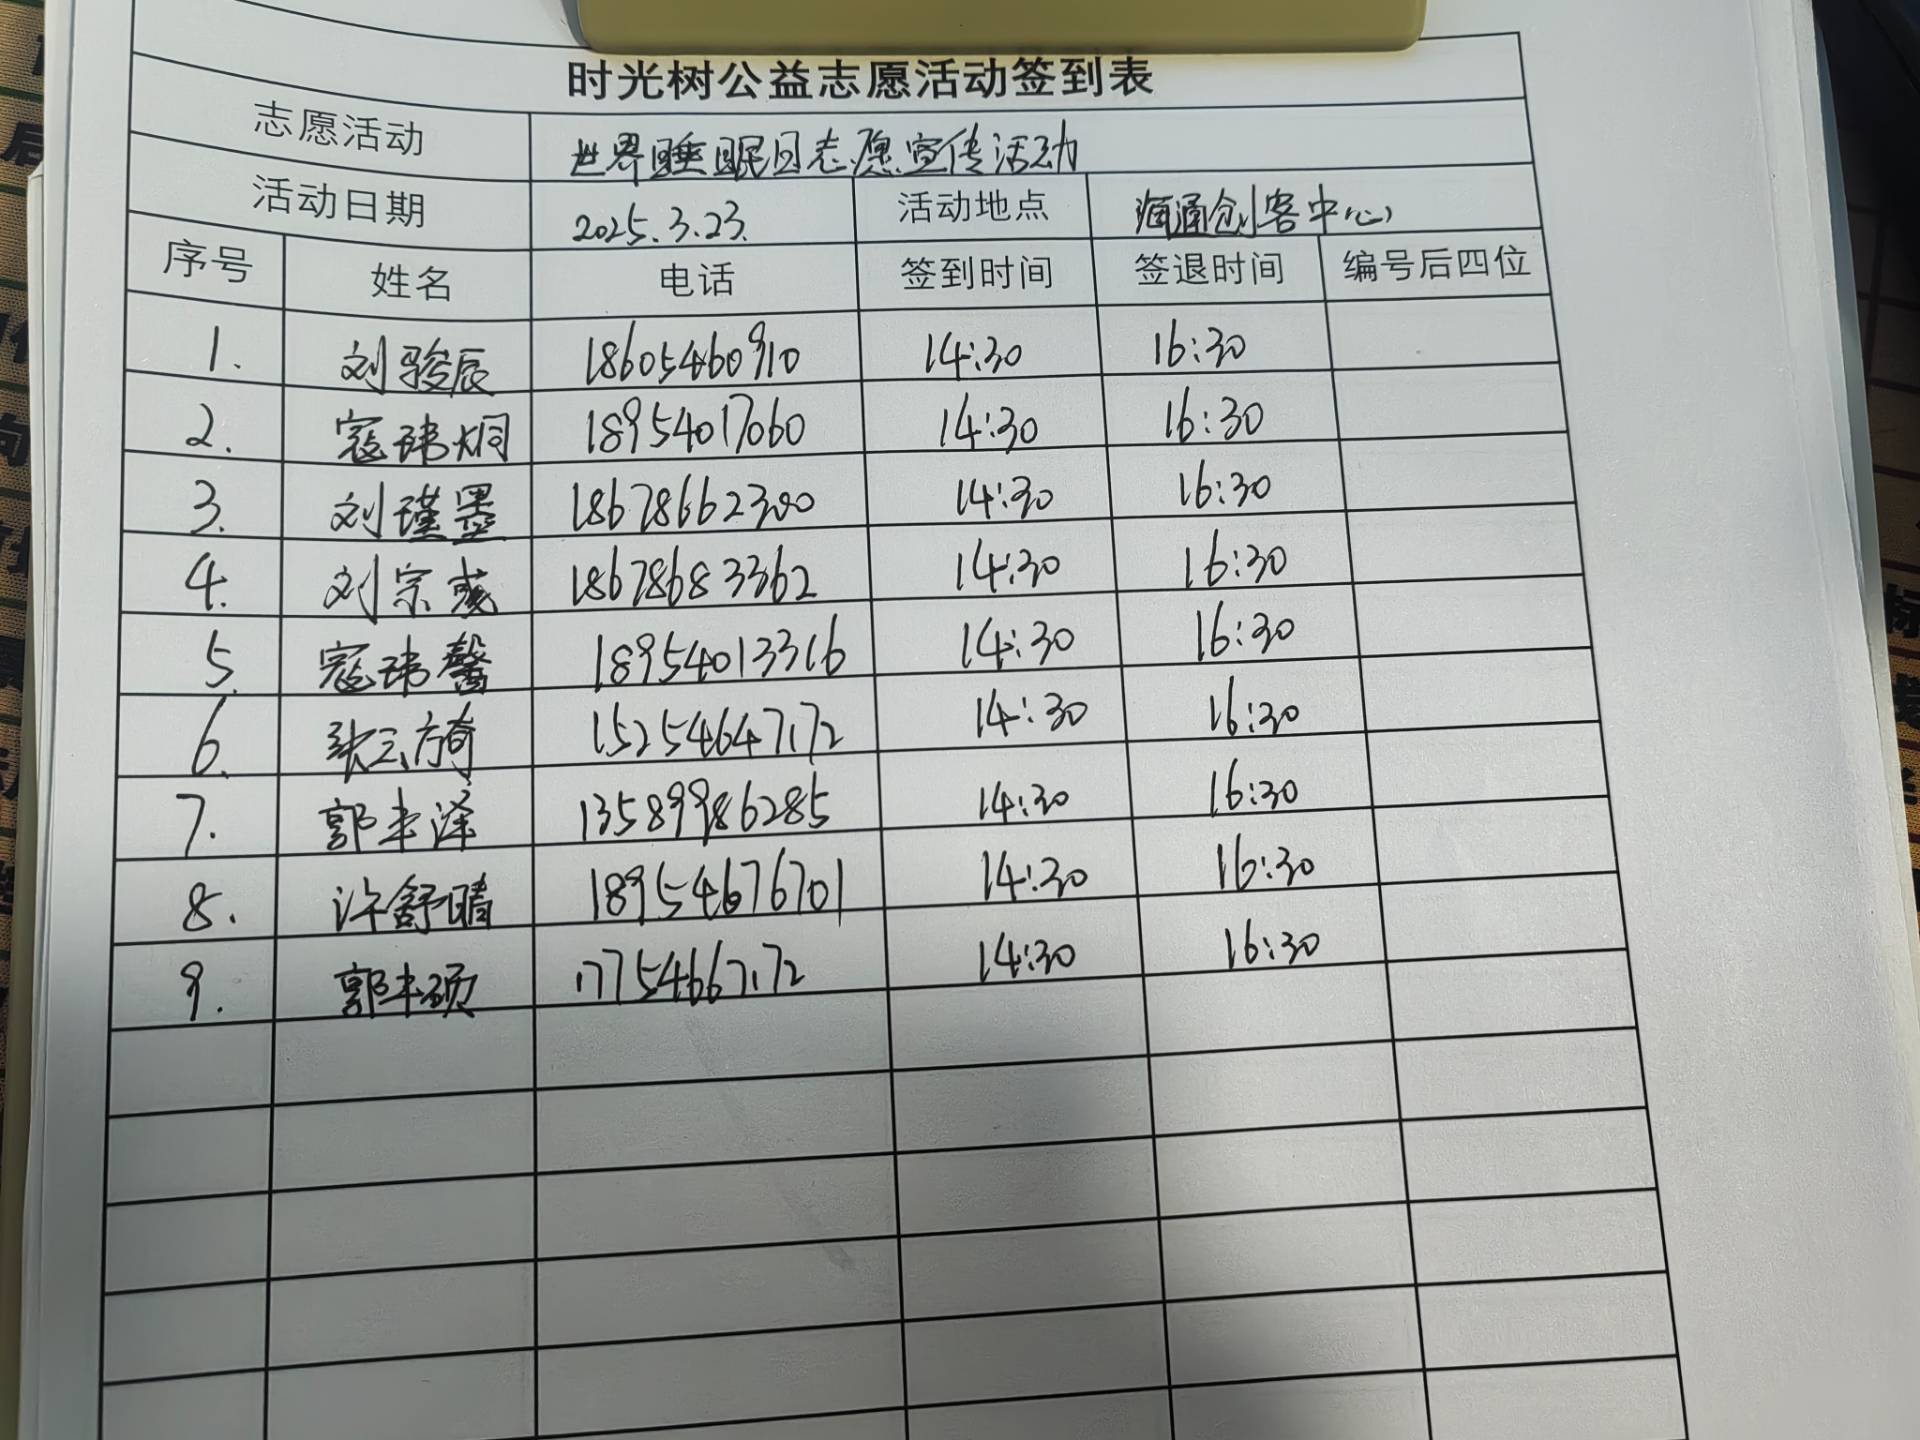 时光树公益志愿活动签到表
志愿活动 世界睡眠日志愿宣传活动
活动日期 2025.3.23. 活动地点 海通创客中心
序号 姓名 电话 签到时间 签退时间 编号后四位
1. 刘骏辰 18605460910 14:30 16:30
2. 寇玮炯 18954017060 14:30 16:30
3. 刘瑾墨 18678662300 14:30 16:30
4. 刘宗彧 18678683362 14:30 16:30
5. 寇玮馨 18954013316 14:30 16:30
6. 张云旖 15254647172 14:30 16:30
7. 郭丰泽 13589986285 14:30 16:30
8. 许舒晴 18954676701 14:30 16:30
9. 郭丰硕 17754667172 14:30 16:30